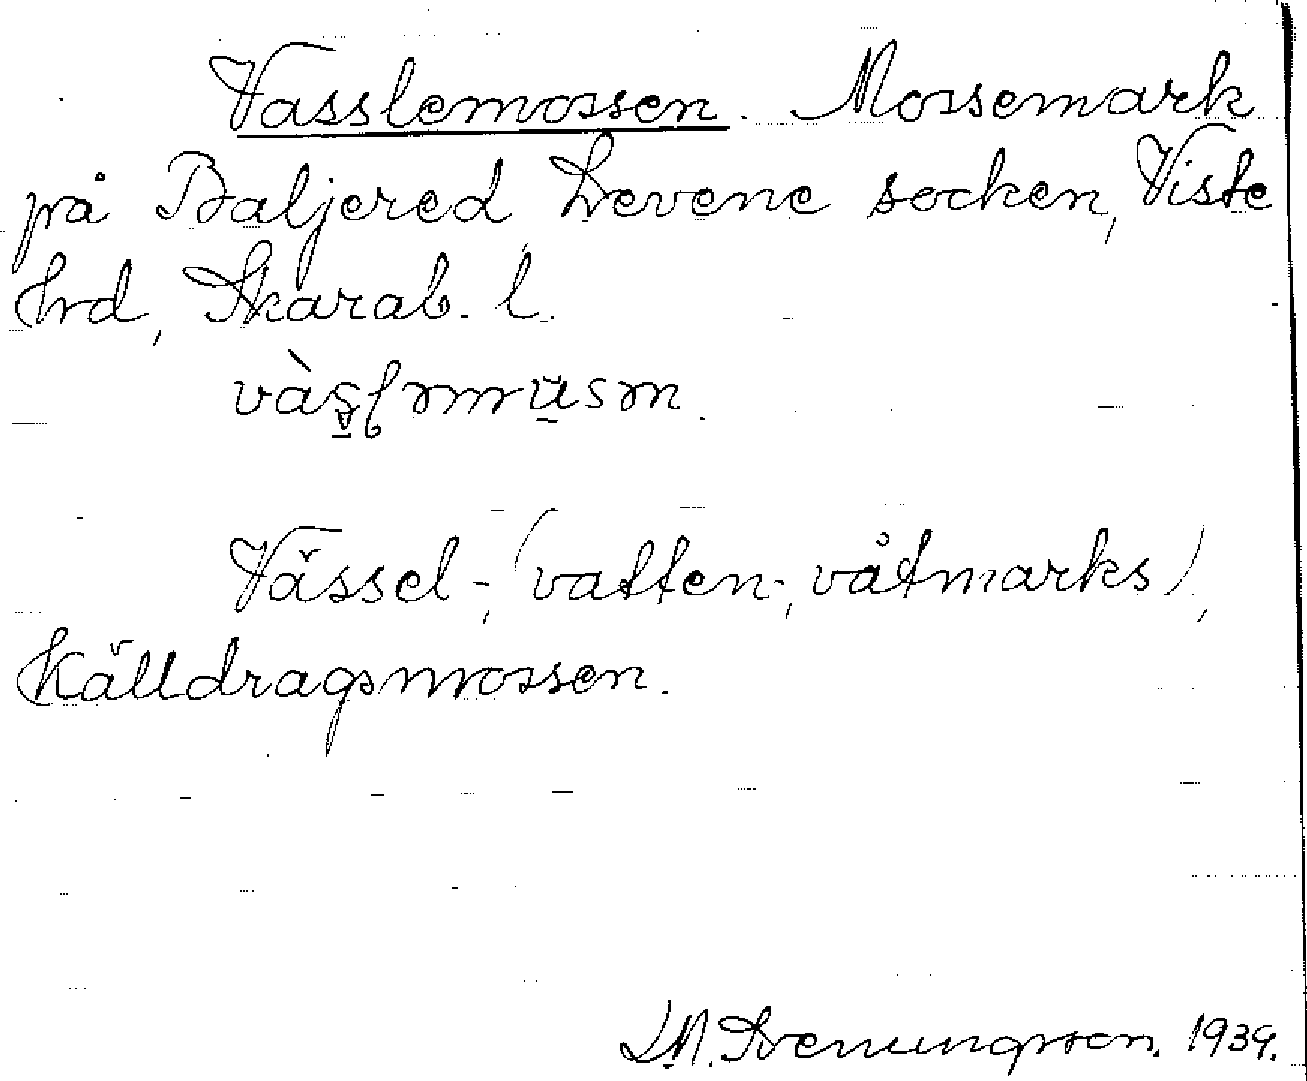 Vasslemossen. Mossemark
på Baljered Levene socken, Viste
hrd, Skarab. l.
Vässel-, (vatten-, våtmarks),
Källdragsmossen.
L.M. Svenungsson. 1939.